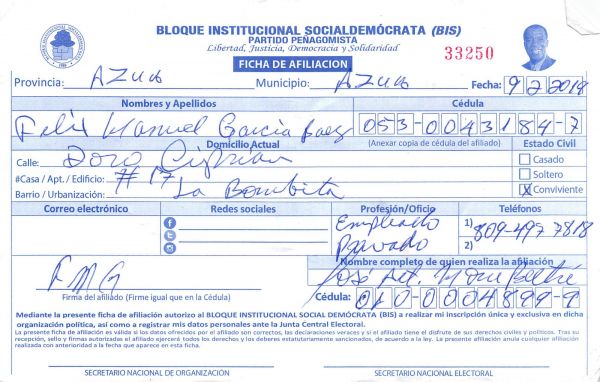 BLOQUE INSTITUCIONAL SOCIALDEMÓCRATA (BIS)
PARTIDO PEÑAGOMISTA
Libertad, Justicia, Democracia y Solidaridad
33250
FICHA DE AFILIACION
Provincia: AZUA Municipio: AZUA Fecha: 9 2 2018
Nombres y Apellidos Cédula
Felix Manuel Garcia Baez 053-0043184-7
Domicilio Actual (Anexar copia de cédula del afiliado) Estado Civil
Calle: Doro Ciprian Casado
#Casa / Apt. / Edificio: #17 Soltero
Barrio / Urbanización: La Bombita X Conviviente
Correo electrónico Redes sociales Profesión/Oficio Teléfonos
Empleado 1) 809-497 7818
Privado 2)
Nombre completo de quien realiza la afiliación
FMG José Alt.
Firma del afiliado (Firme igual que en la Cédula) Cédula: 010-0004899-
Mediante la presente ficha de afiliación autorizo al BLOQUE INSTITUCIONAL SOCIAL DEMÓCRATA (BIS) a realizar mi inscripción única y exclusiva en dicha
organización política, así como a registrar mis datos personales ante la Junta Central Electoral.
La presente ficha de afiliación es válida si los datos ofrecidos por el afiliado son correctos, las declaraciones veraces y si el afiliado tiene el disfrute de sus derechos civiles y políticos. Tras su
recepción, sello y firmas autorizadas el afiliado ejercerá todos los derechos y los deberes estatutariamente sancionados, de acuerdo a la ley. La presente afiliación anula cualquier afiliación
realizada con anterioridad a la fecha que aparece en esta ficha.
SECRETARIO NACIONAL DE ORGANIZACIÓN SECRETARIO NACIONAL ELECTORAL